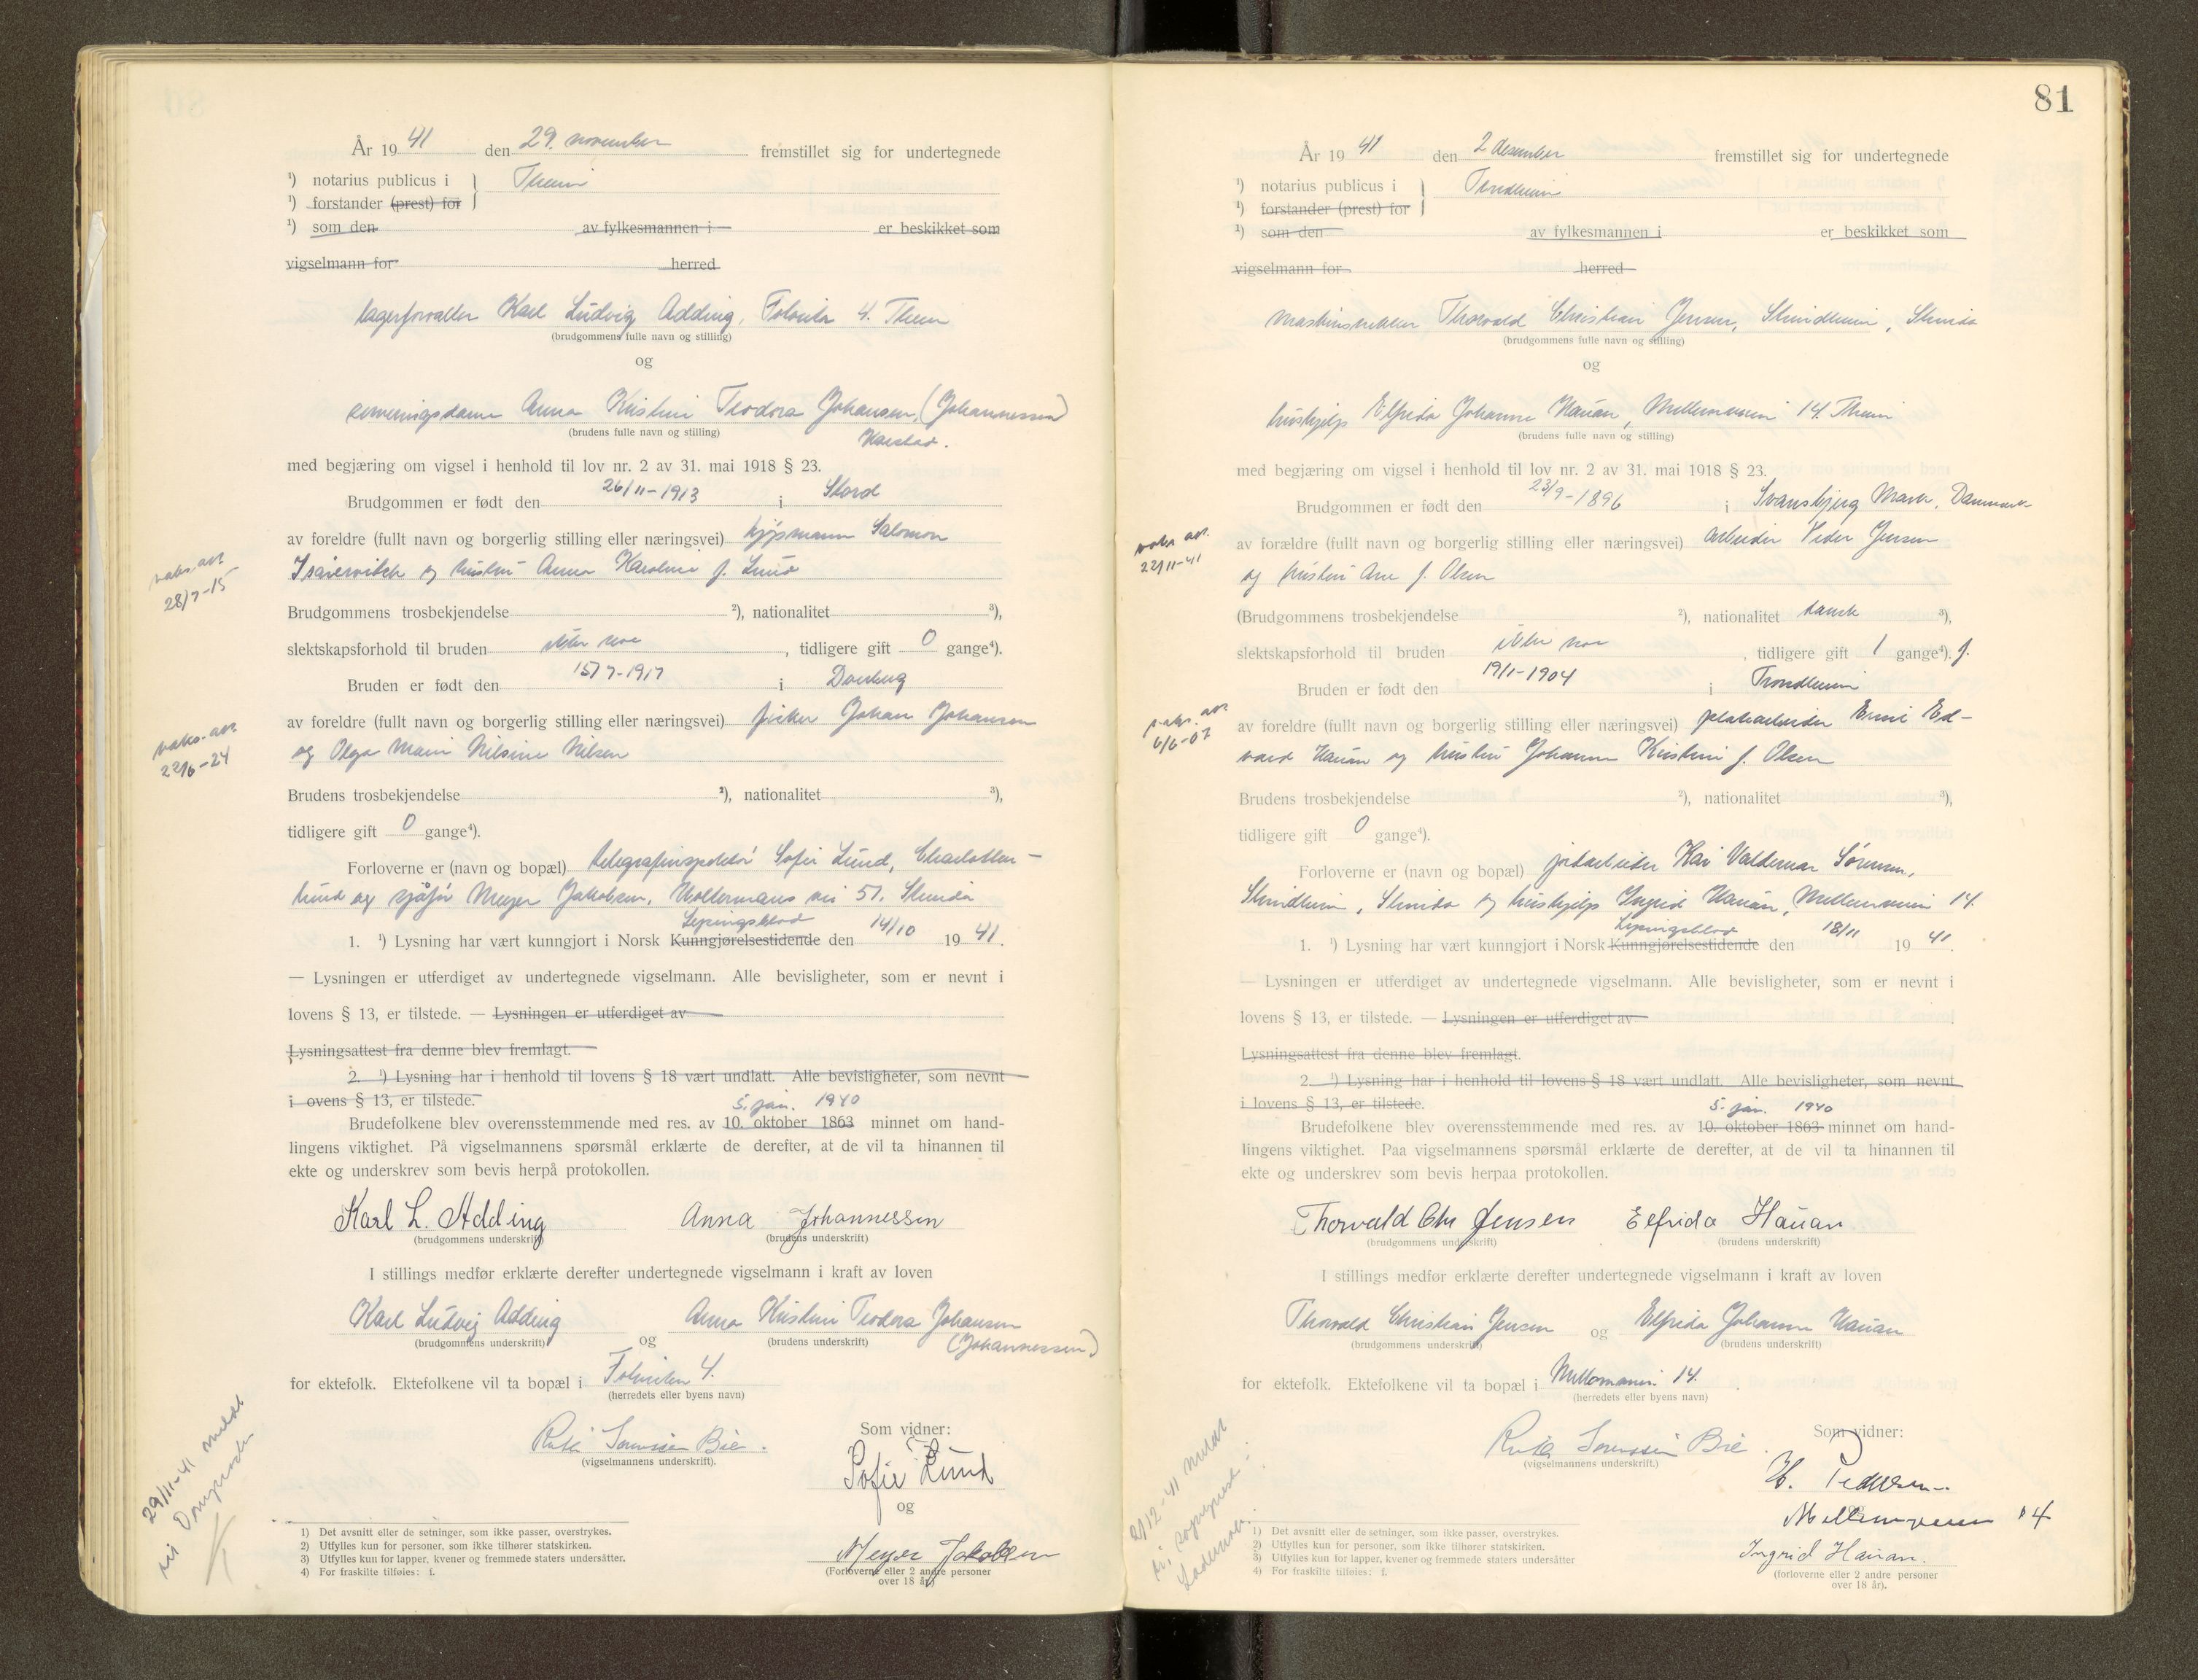 År 1941 den 29. november fremstillet sig for undertegnede
¹) notarius publicus i } Trheim
¹) forstander (prest) for
¹) som den av fylkesmannen i er beskikket som
vigselmann for herred
lagerforvalter Karl Ludvig Adding, 4. Trheim
(brudgommens fulle navn og stilling)
og
serveringsdame Anna Kristine Teodora Johansen, (Johannessen)
(brudens fulle navn og stilling) Harstad.
med begjæring om vigsel i henhold til lov nr. 2 av 31. mai 1918 § 23.
Brudgommen er født den 26/11-1913 i Stord
av foreldre (fullt navn og borgerlig stilling eller næringsvei) kjøpmann Salomon
vaks. att. 28/7-15
Isaiewitch og hustru Anna Karoline f. Lund
Brudgommens trosbekjendelse ²), nationalitet ³),
slektskapsforhold til bruden ikke noe, tidligere gift 0 gange⁴).
Bruden er født den 15/7-1917 i
av foreldre (fullt navn og borgerlig stilling eller næringsvei) fisker Johan Johansen
vaks. att. 22/6-24
og Olga Marie Nilsine Nilsen
Brudens trosbekjendelse ²), nationalitet ³),
tidligere gift 0 gange⁴).
Forloverne er (navn og bopæl) telegrafinspektør Sofie Lund, Charlotten-
lund og sjåfør Meyer Jakobsen, vei 51, Strinda
Lysingsblad
1. ¹) Lysning har vært kunngjort i Norsk Kunngjørelsestidende den 14/10 1941.
— Lysningen er utferdiget av undertegnede vigselmann. Alle bevisligheter, som er nevnt i
lovens § 13, er tilstede. — Lysningen er utferdiget av
Lysningsattest fra denne blev fremlagt.
2. ¹) Lysning har i henhold til lovens § 18 vært undlatt. Alle bevisligheter, som nevnt
i ovens § 13, er tilstede.
5. jan. 1940
Brudefolkene blev overensstemmende med res. av 10. oktober 1863 minnet om hand-
lingens viktighet. På vigselmannens spørsmål erklærte de derefter, at de vil ta hinannen til
ekte og underskrev som bevis herpå protokollen.
Karl L. Adding Anna Johannessen
(brudgommens underskrift) (brudens underskrift)
I stillings medfør erklærte derefter undertegnede vigselmann i kraft av loven
Karl Ludvig Adding og Anna Kristine Teodora Johansen
(brudgommens underskrift) (brudens underskrift) (Johannessen)
for ektefolk. Ektefolkene vil ta bopæl i 4.
(herredets eller byens navn)
Sørenssen Bie.
(vigselmannens underskrift).
Som vidner:
Sofie Lund
og
Meyer Jakobsen
(Forloverne eller 2 andre personer
over 18 år)
29/11-41 meldt
til Domprosten
1) Det avsnitt eller de setninger, som ikke passer, overstrykes.
2) Utfylles kun for personer, som ikke tilhører statskirken.
3) Utfylles kun for lapper, kvener og fremmede staters undersåtter.
4) For fraskilte tilføies: f.
81
År 1941 den 2 desember fremstillet sig for undertegnede
¹) notarius publicus i } Trondheim
¹) forstander (prest) for
¹) som den av fylkesmannen i er beskikket som
vigselmann for herred
Thorvald Christian Jensen, Strindheim, Strinda
(brudgommens fulle navn og stilling)
og
hushjelp Elfrida Johanne Hauan, Mellemveien 14. Trheim
(brudens fulle navn og stilling)
med begjæring om vigsel i henhold til lov nr. 2 av 31. mai 1918 § 23.
Brudgommen er født den 23/9-1896 i Svansbjerg Mark, Danmark
vaks. att. 22/11-41
av forældre (fullt navn og borgerlig stilling eller næringsvei) arbeider Peder Jensen
og hustru Ane f. Olsen
(Brudgommens trosbekjendelse ²), nationalitet dansk ³),
slektskapsforhold til bruden ikke noe, tidligere gift 1 gange⁴). f.
Bruden er født den 19/1-1904 i Trondheim
vaks. att. 6/6-07
av foreldre (fullt navn og borgerlig stilling eller næringsvei) platearbeider Emil Ed-
vard Hauan og hustru Johanne Kristine f. Olsen
Brudens trosbekjendelse ²), nationalitet ³),
tidligere gift 0 gange⁴).
Forloverne er (navn og bopæl) jordarbeider Kai Valdemar Sørensen,
Strindheim, Strinda og hushjelp Ingrid Hauan, Mellemveien 14.
Lysingsblad
1. ¹) Lysning har vært kunngjort i Norsk Kunngjørelsestidende den 18/11 1941.
— Lysningen er utferdiget av undertegnede vigselmann. Alle bevisligheter, som er nevnt i
lovens § 13, er tilstede. — Lysningen er utferdiget av
Lysningsattest fra denne blev fremlagt.
2. ¹) Lysning har i henhold til lovens § 18 vært undlatt. Alle bevisligheter, som nevnt
i lovens § 13, er tilstede.
5. jan. 1940
Brudefolkene blev overensstemmende med res. av 10. oktober 1863 minnet om hand-
lingens viktighet. Paa vigselmannens spørsmål erklærte de derefter, at de vil ta hinannen til
ekte og underskrev som bevis herpaa protokollen.
Thorvald Chr Jensen Elfrida Hauan
(brudgommens underskrift) (brudens underskrift)
I stillings medfør erklærte derefter undertegnede vigselmann i kraft av loven
Thorvald Christian Jensen og Elfrida Johanne Hauan
(brudgommens underskrift) (brudens underskrift)
for ektefolk. Ektefolkene vil ta bopæl i Mellomveien 14.
(herredets eller byens navn)
Sørenssen Bie.
(vigselmannens underskrift.)
Som vidner:
H. Pedersen
Mellemveien 14
Ingrid Hauan.
(forloverne eller 2 andre personer
over 18 år).
2/12-41 meldt
til sogneprest i
Lademoen.
1) Det avsnitt eller de setninger, som ikke passer, overstrykes.
2) Utfylles kun for personer, som ikke tilhører statskirken.
3) Utfylles kun for lapper, kvener og fremmede staters undersåtter
4) For fraskilte tilføies: f.